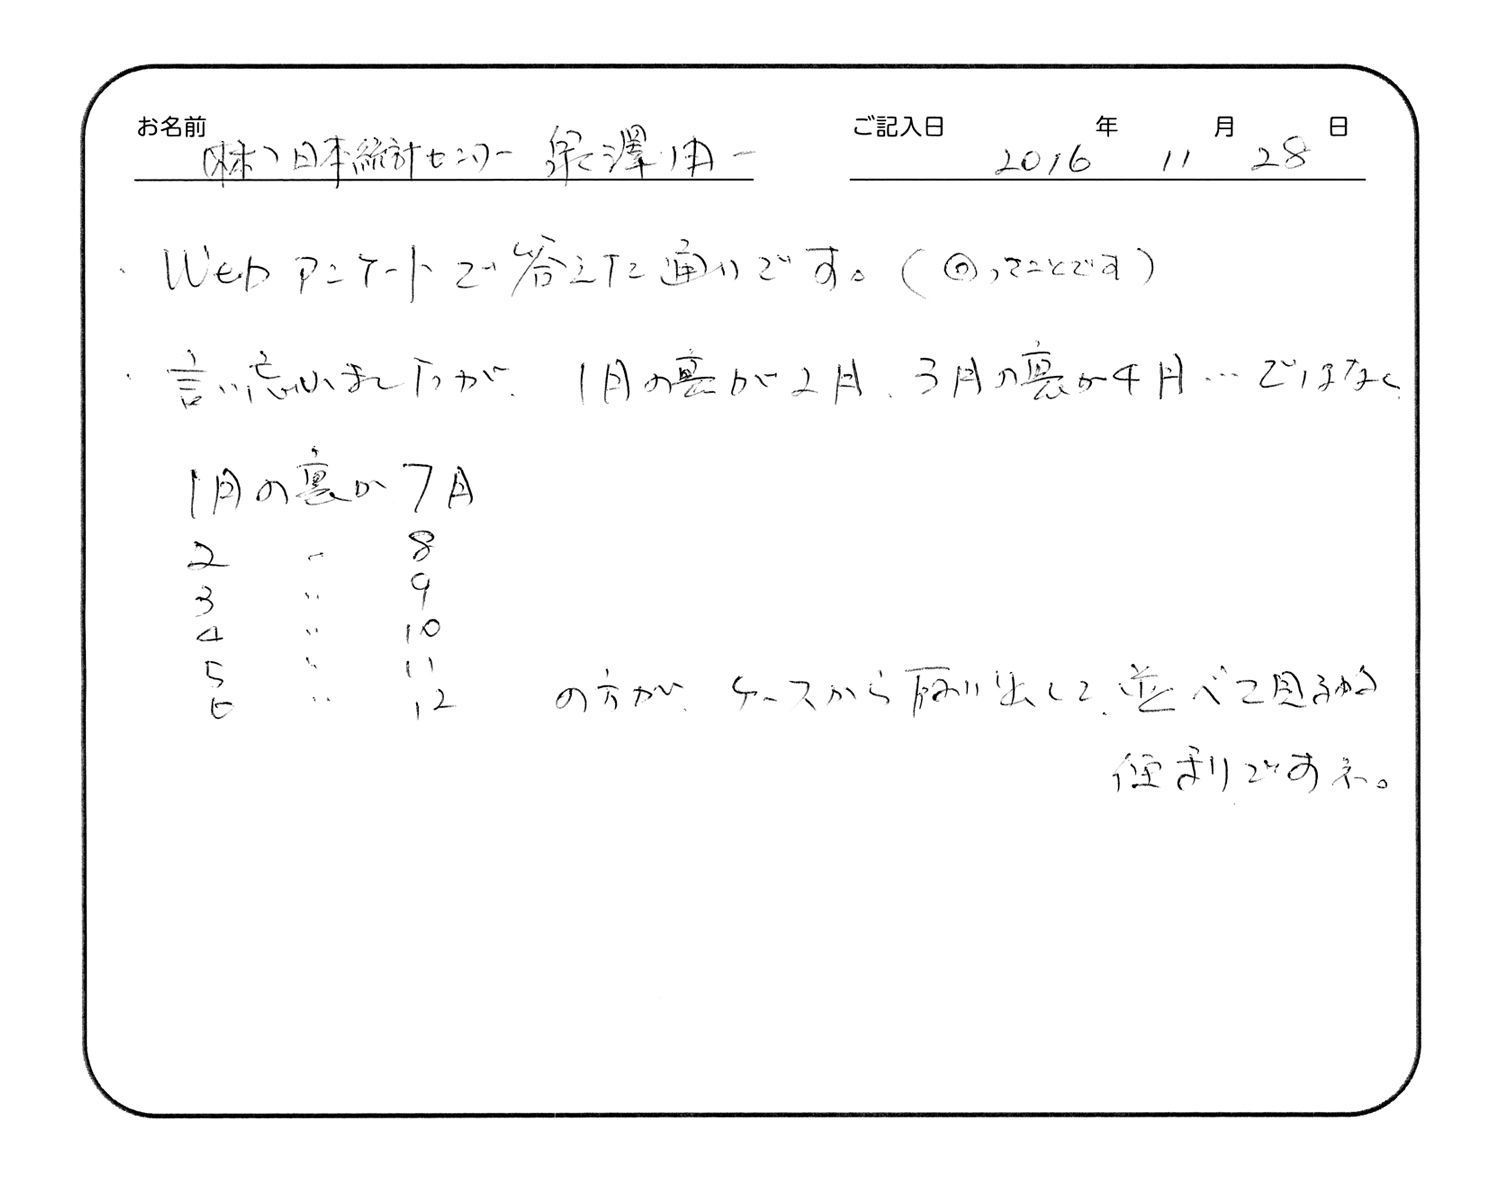 お名前 (株)日本統計センター 泉澤 ご記入日 2016年 11月 28日
・Webアンケートで答えた通りです。(◎ってことです)
・言い忘れましたが、1月の裏が2月、3月の裏が4月…ではなく、
1月の裏が7月
2 〃 8
3 〃 9
4 〃 10
5 〃 11
6 〃 12 の方が、ケースから取り出して、並べて見る
便利ですネ。